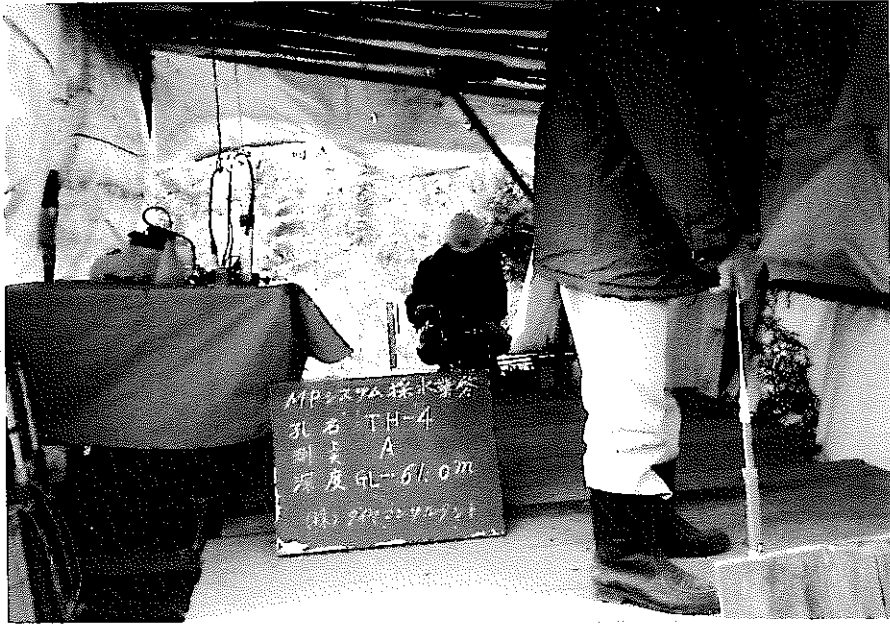 MPシステム採水業務
孔名 TH-4
測点 A
深度 GL-61.0m
(株)ダイヤコンサルタント